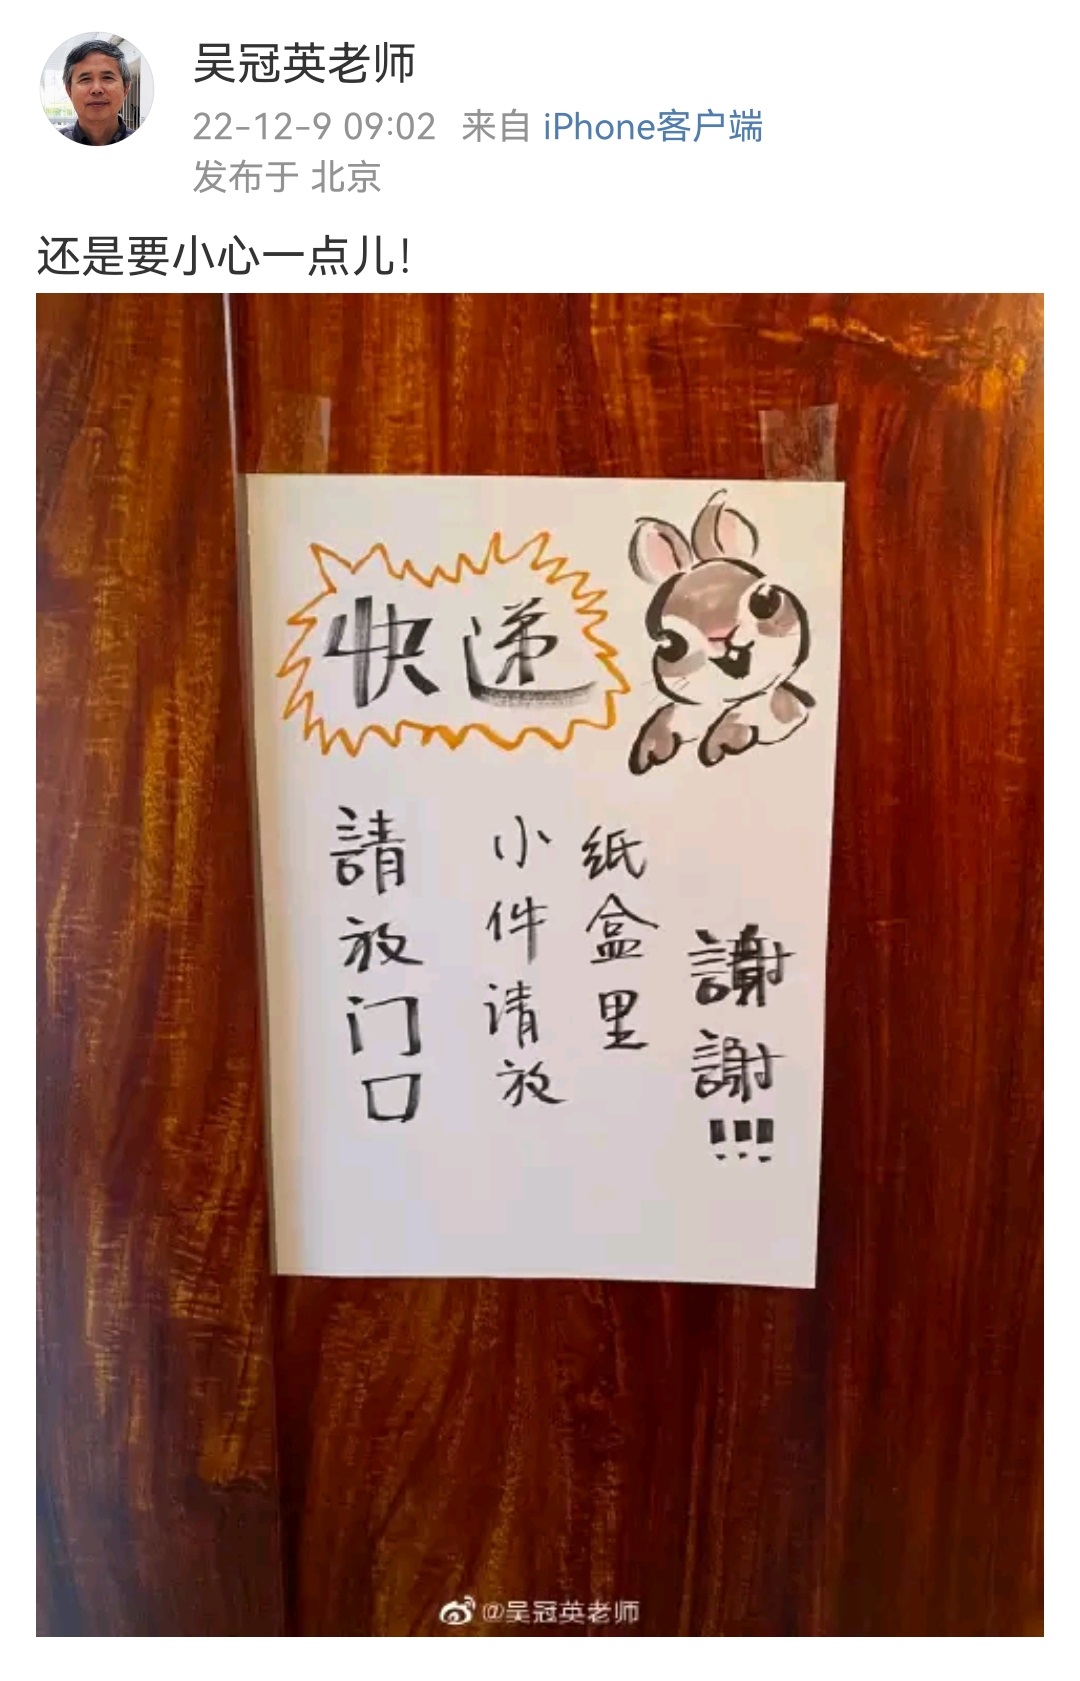 吴冠英老师
22-12-9 09:02 来自 iPhone客户端
发布于 北京
还是要小心一点儿！
快递
請放门口
小件请放
纸盒里
謝謝!!!
@吴冠英老师